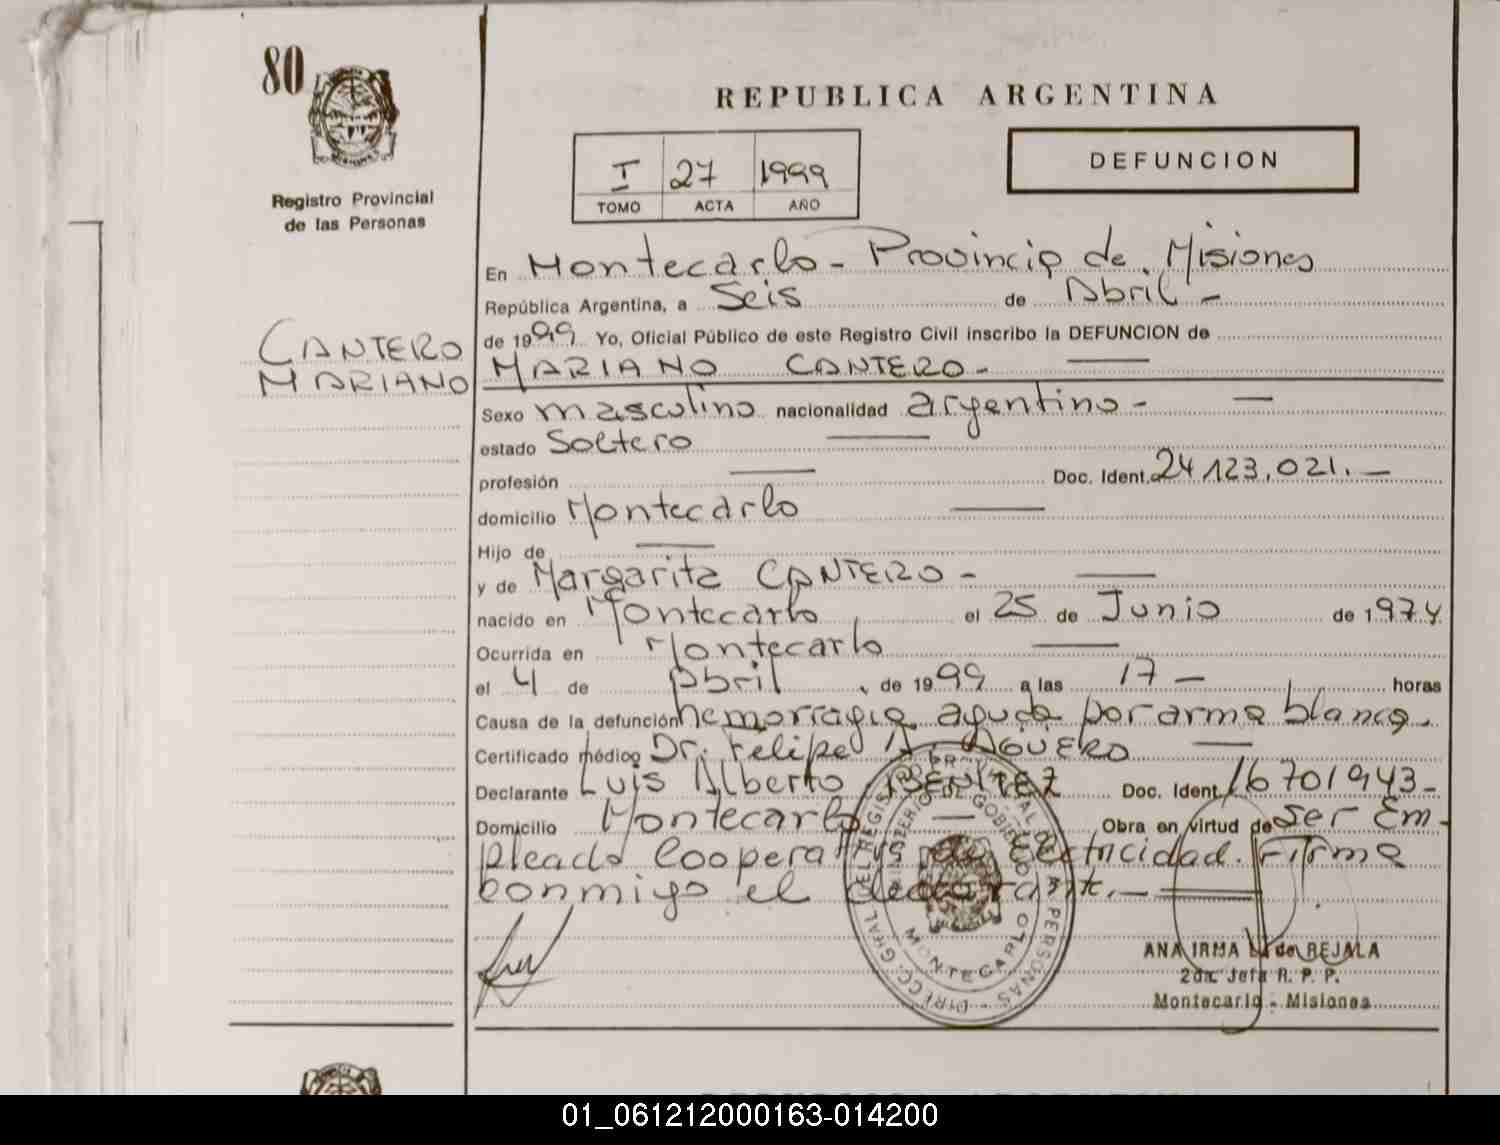 80
Registro Provincial
de las Personas
CANTERO
MARIANO
REPUBLICA ARGENTINA
I 27 1999
TOMO ACTA AÑO
DEFUNCION
En Montecarlo - Provincia de Misiones
República Argentina, a Seis de Abril -
de 1999 Yo, Oficial Público de este Registro Civil inscribo la DEFUNCION de
MARIANO CANTERO -
Sexo masculino nacionalidad argentino -
estado Soltero
profesión Doc. Ident. 24.123.021. -
domicilio Montecarlo
Hijo de
y de Margarita CANTERO -
nacido en Montecarlo el 25 de Junio de 1974
Ocurrida en Montecarlo
el 4 de Abril de 1999 a las 17 - horas
Causa de la defunción hemorragia aguda por arma blanca.
Certificado médico Dr. Felipe A. AGÜERO
Declarante Luis Alberto BENITEZ Doc. Ident. 16701943-
Domicilio Montecarlo - Obra en virtud de Ser Em-
pleado Cooperativa de Electricidad. Firma
conmigo el declarante. -
MINISTERIO DE GOBIERNO
MONTECARLO
ANA IRMA de REJALA
2da. Jefa R. P. P.
Montecarlo - Misiones
01_061212000163-014200